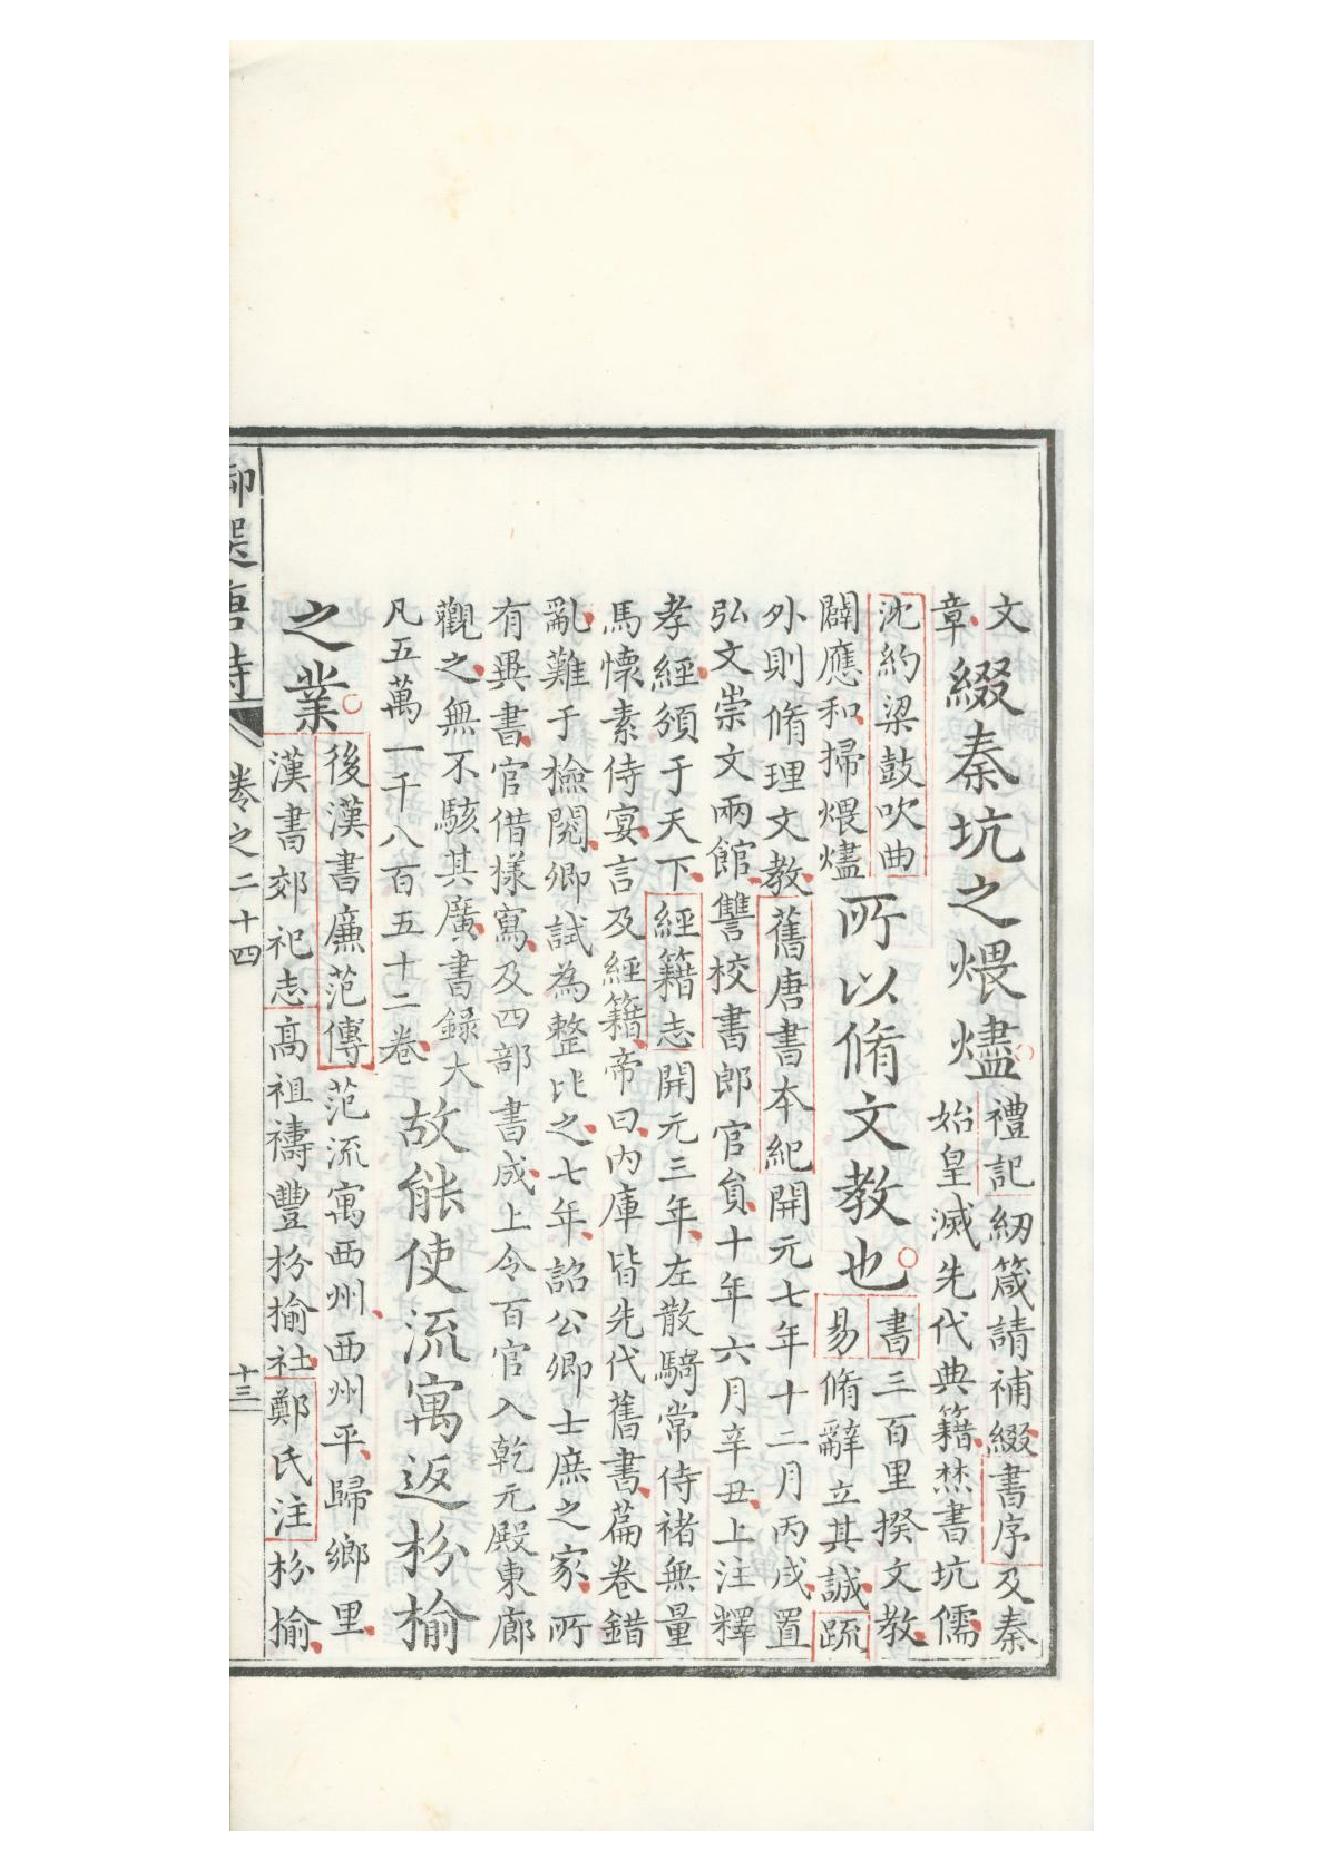 文
章
綴秦坑之煨燼
禮記紉箴請補綴書序及秦
始皇滅先代典籍焚書坑儒
沈約梁鼓吹曲
闢應和掃煨燼
所以脩文教也
書三百里揆文教
易脩辭立其誠疏
外則脩理文教舊唐書本紀開元七年十二月丙戌置
弘文崇文兩館讐校書郎官員十年六月辛丑上注釋
孝經頒于天下經籍志開元三年左散騎常侍禇無量
馬懷素侍宴言及經籍帝曰内庫皆先代舊書篇卷錯
亂難于檢閱卿試為整比之七年詔公卿士庶之家所
有異書官借樣寫及四部書成上令百官入乾元殿東廊
觀之無不駭其廣書錄大
凡五萬一千八百五十二卷
故能使流寓返枌榆
之業
後漢書廉范傳范流寓西州西州平歸鄉里
漢書郊祀志高祖禱豐枌榆社鄭氏注枌榆
御選唐詩 卷之二十四 十三